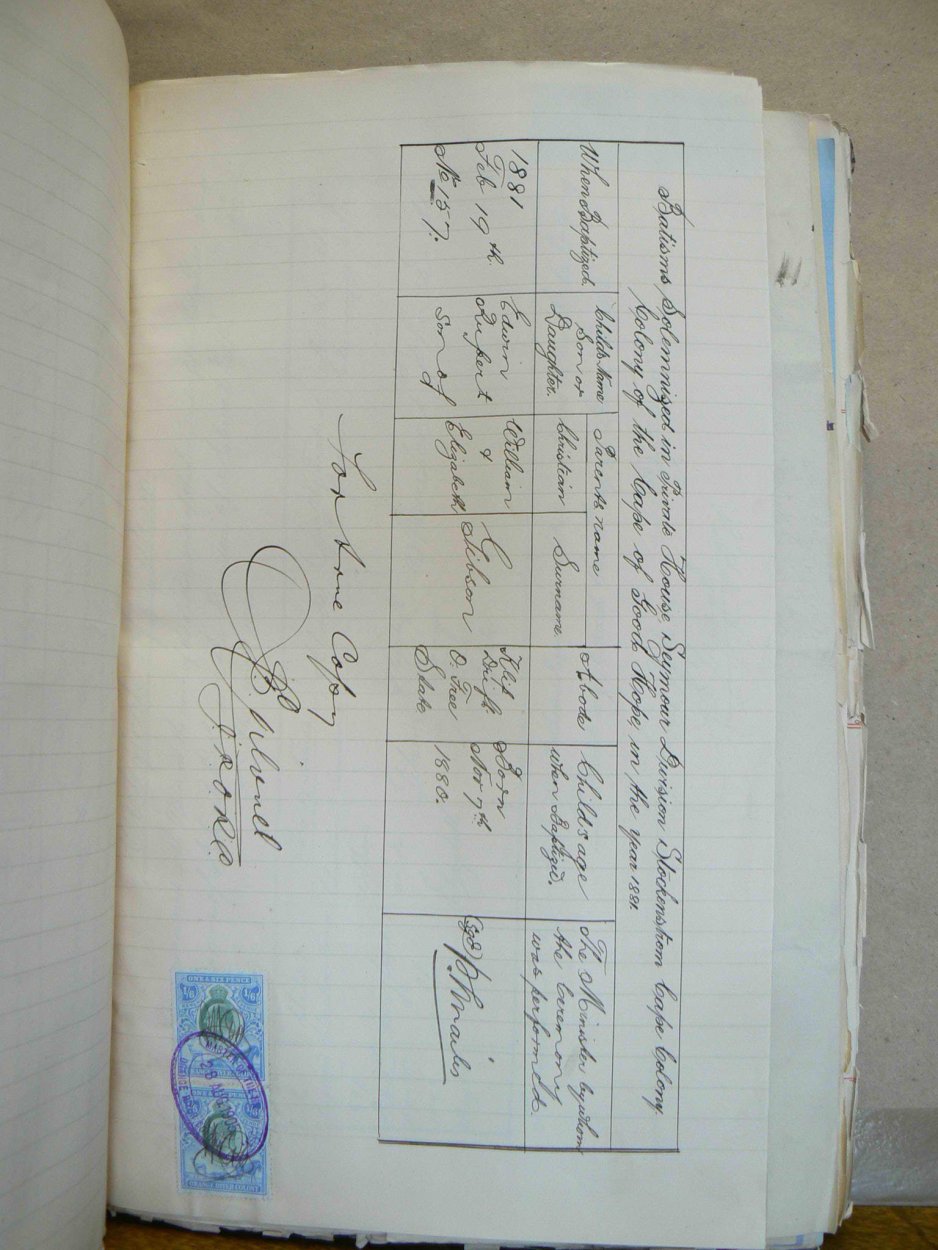 Batisms Solemnized in Private House, Seymour Division Stockenstrom Cape Colony
Colony of the Cape of Good Hope, in the year 1881.
When Baptized.
Childs Name
Son or
Daughter.
Parents name
Christian
Surname.
Abode
Child's age
when Baptized.
The Minister by whom
the Ceremony
was performed.
1881
Feb 19th.
No 157.
Edwin
Rupert
Son of
William
&
Elizabeth.
Gibson
Klip
Drift.
O. Free
State
Born
Nov 7th.
1880.
Sgd
For true Copy
ONE & SIX PENCE
1/6
1/6
MASTER OF THE
28 AUG
OFFICE
ONE & SIX PENCE
1/6
ORANGE RIVER COLONY